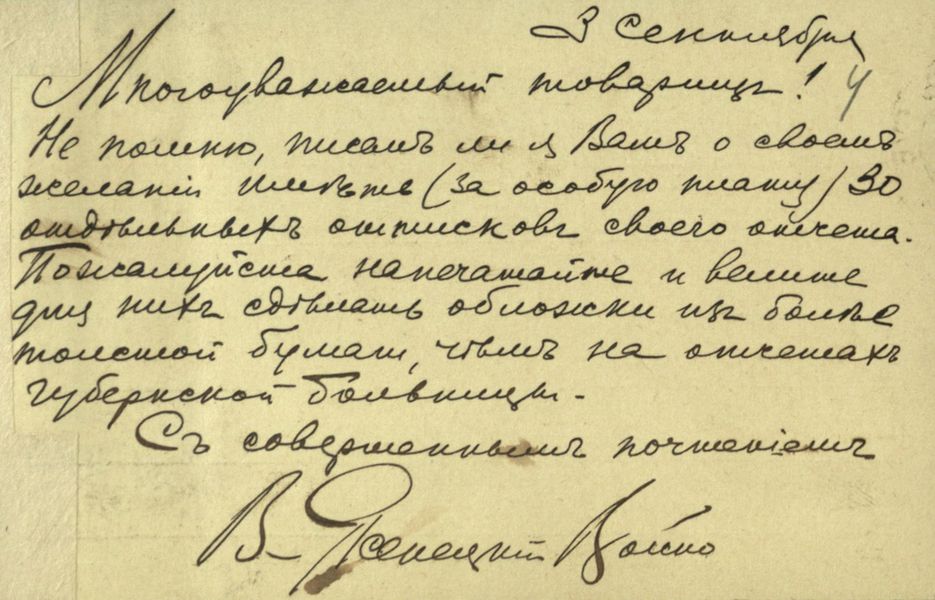 3 Сентября
4
Многоуважаемый товарищъ!
Не помню, писалъ ли я Вамъ о своемъ
желаніи имѣть (за особую плату) 30
отдѣльныхъ оттисковъ своего отчета.
Пожалуйста напечатайте и велите
для нихъ сдѣлать обложки изъ болѣе
толстой бумаги, чѣмъ на отчетахъ
губернской больницы.
Съ совершеннымъ почтеніемъ
В. Ясенецкій Войно